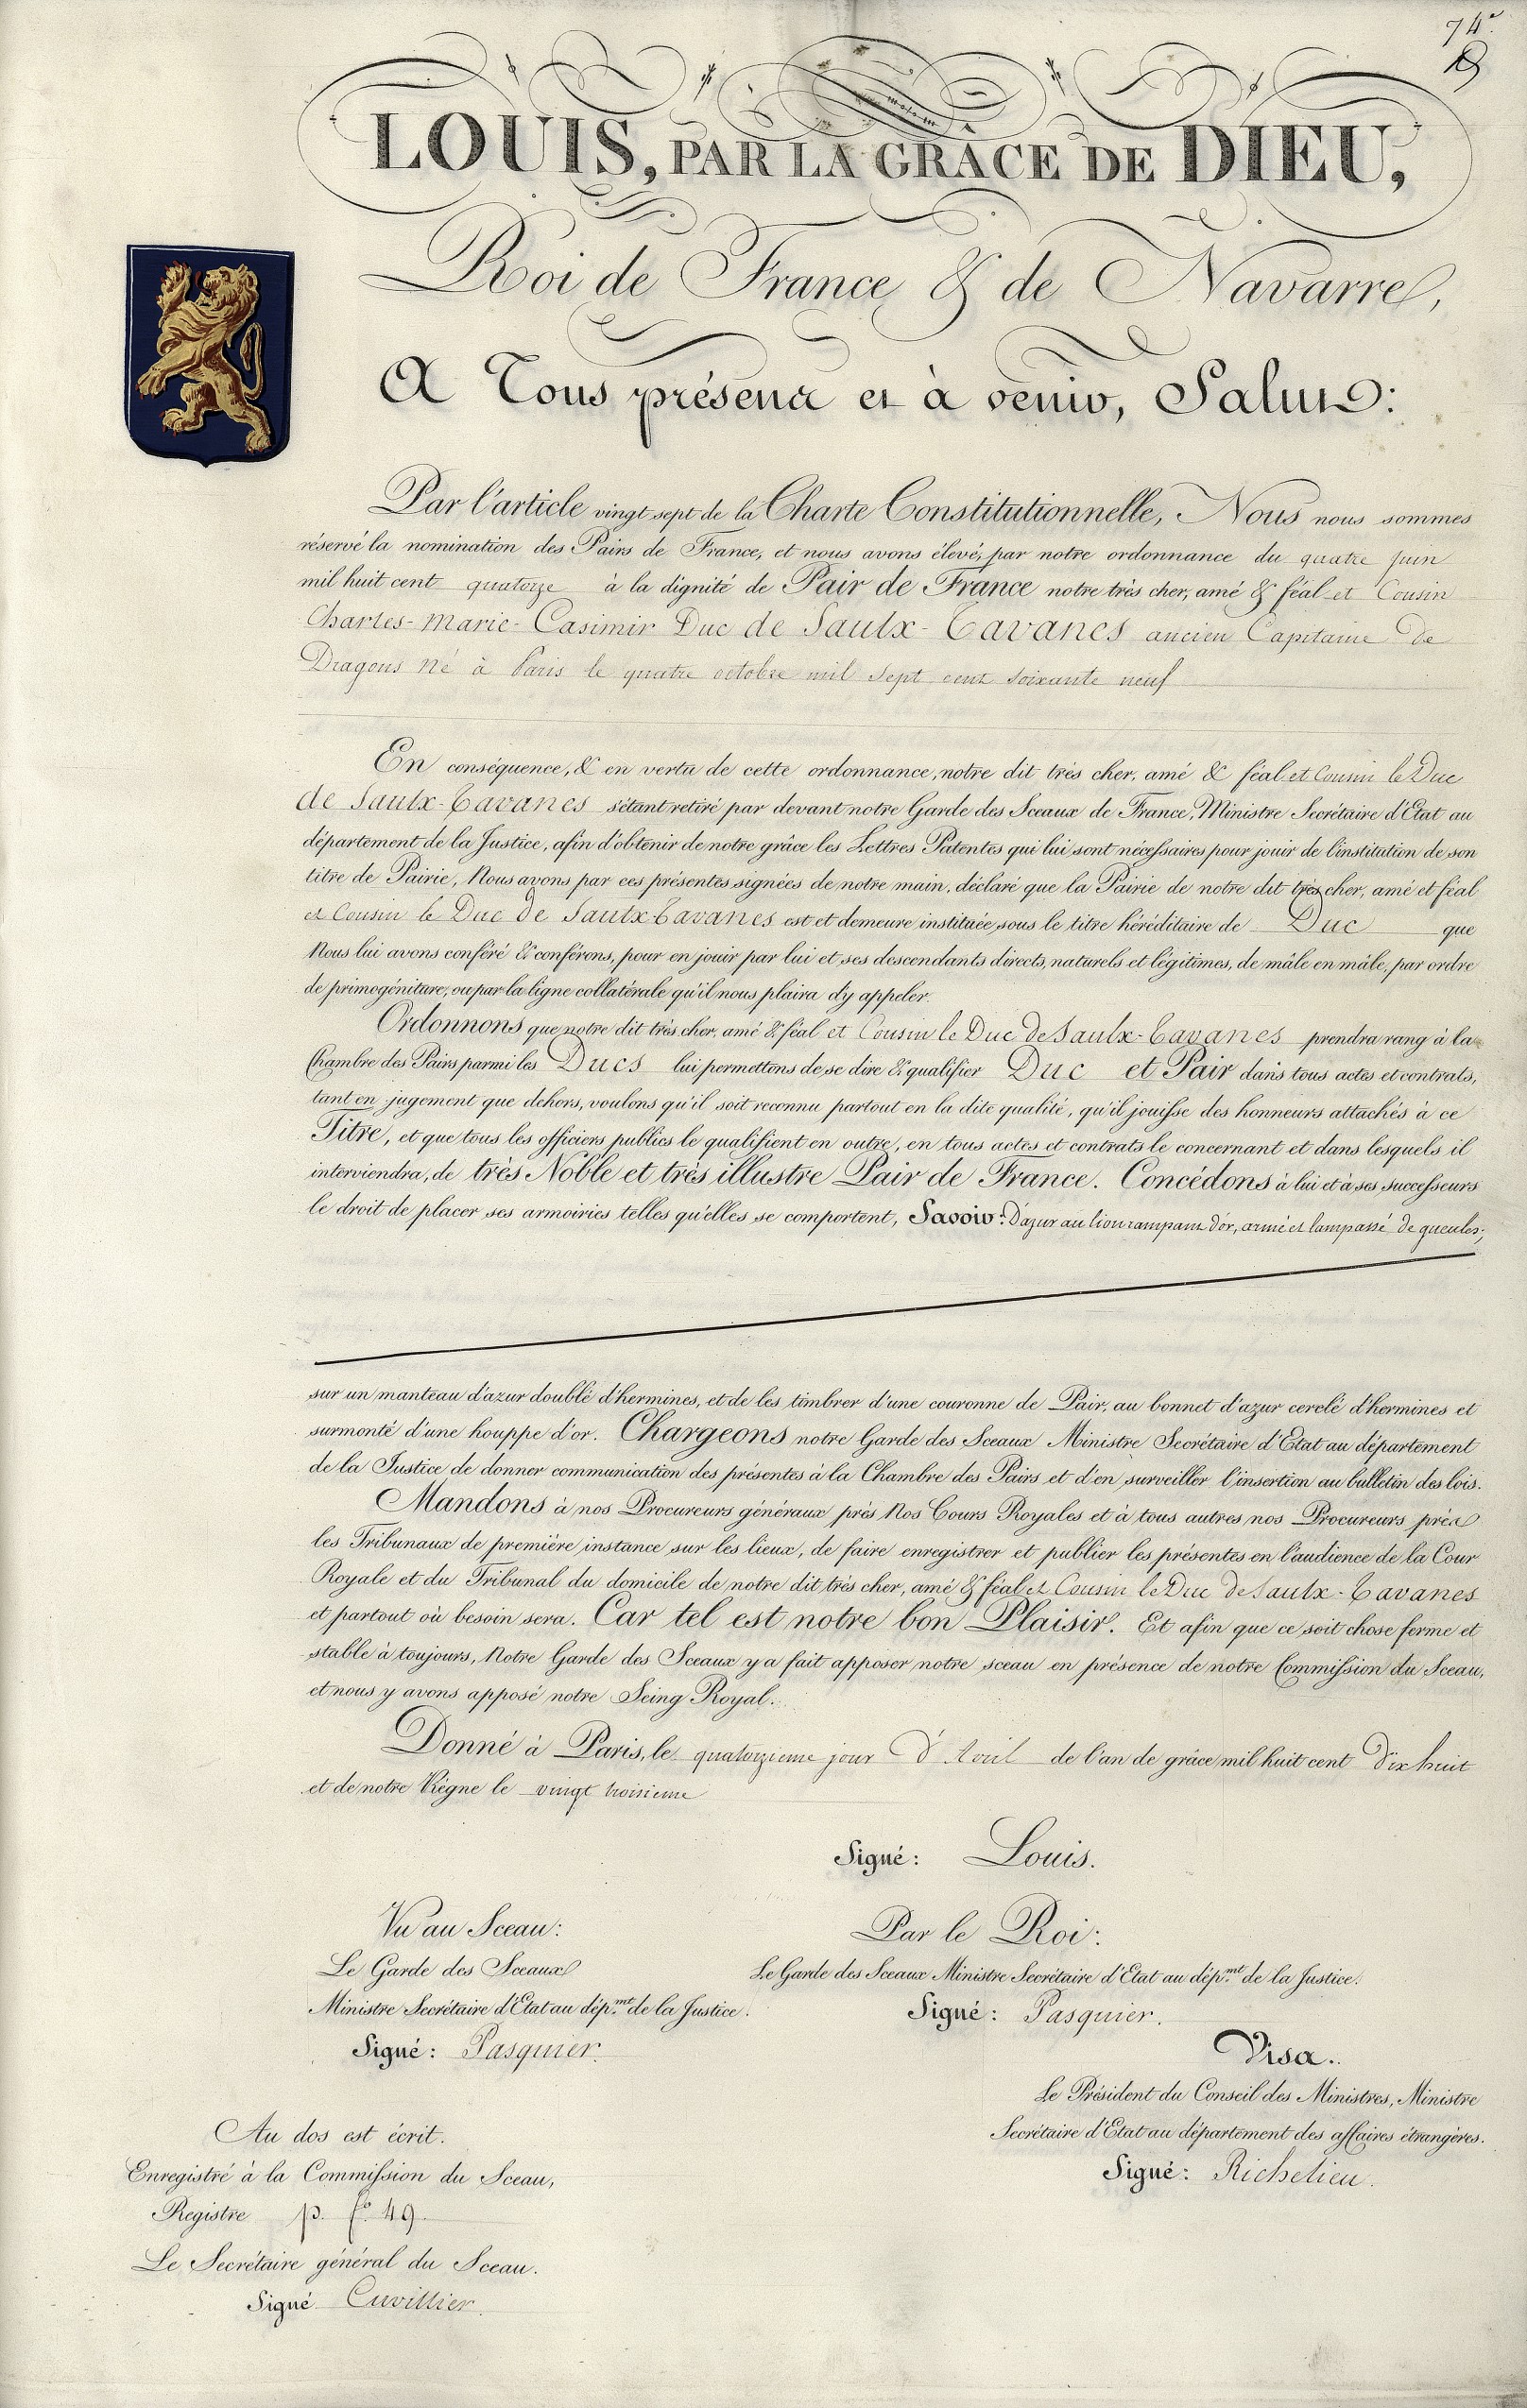 74e
LOUIS, PAR LA GRÂCE DE DIEU,
Roi de France & de Navarre,
A Tous présens et à venir, Salut:
Par l'article vingt sept de la Charte Constitutionnelle, Nous nous sommes
réservé la nomination des Pairs de France, et nous avons élevé, par notre ordonnance du quatre juin
mil huit cent quatorze à la dignité de Pair de France notre très cher, amé & féal et Cousin
Charles-Marie-Casimir Duc de Saulx-Tavanes ancien Capitaine de
Dragons né à Paris le quatre octobre mil sept cent soixante neuf
En conséquence, & en vertu de cette ordonnance, notre dit très cher, amé & féal et Cousin le Duc
de Saulx-Tavanes s'étant retiré par devant notre Garde des Sceaux de France, Ministre Secrétaire d'Etat au
département de la Justice, afin d'obtenir de notre grâce les Lettres Patentes qui lui sont nécessaires pour jouir de l'institution de son
titre de Pairie, Nous avons par ces présentes signées de notre main, déclaré que la Pairie de notre dit très cher, amé et féal
et Cousin le Duc de Saulx-Tavanes est et demeure instituée sous le titre héréditaire de Duc que
Nous lui avons conféré & conférons, pour en jouir par lui et ses descendants directs, naturels et légitimes, de mâle en mâle, par ordre
de primogéniture, ou par la ligne collatérale qu'il nous plaira d'y appeler.
Ordonnons que notre dit très cher, amé & féal et Cousin le Duc de Saulx-Tavanes prendra rang à la
Chambre des Pairs parmi les Ducs lui permettons de se dire & qualifier Duc et Pair dans tous actes et contrats,
tant en jugement que dehors, voulons qu'il soit reconnu partout en la dite qualité, qu'il jouisse des honneurs attachés à ce
Titre, et que tous les officiers publics le qualifient en outre, en tous actes et contrats le concernant et dans lesquels il
interviendra, de très Noble et très illustre Pair de France. Concédons à lui et à ses successeurs
le droit de placer ses armoiries telles qu'elles se comportent, Savoir: D'azur au lion rampant d'or, armé et lampassé de gueules;
sur un manteau d'azur doublé d'hermines, et de les timbrer d'une couronne de Pair, au bonnet d'azur cerclé d'hermines et
surmonté d'une houppe d'or. Chargeons notre Garde des Sceaux Ministre Secrétaire d'Etat au département
de la Justice de donner communication des présentes à la Chambre des Pairs et d'en surveiller l'insertion au bulletin des lois.
Mandons à nos Procureurs généraux près Nos Cours Royales et à tous autres nos Procureurs près
les Tribunaux de première instance sur les lieux, de faire enregistrer et publier les présentes en l'audience de la Cour
Royale et du Tribunal du domicile de notre dit très cher, amé & féal et Cousin le Duc de Saulx-Tavanes
et partout où besoin sera. Car tel est notre bon Plaisir. Et afin que ce soit chose ferme et
stable à toujours, Notre Garde des Sceaux y a fait apposer notre sceau en présence de notre Commission du Sceau,
et nous y avons apposé notre Seing Royal.
Donné à Paris, le quatorzieme jour d'Avril de l'an de grâce mil huit cent dix huit
et de notre Règne le vingt troisieme
Signé: Louis.
Vu au Sceau:
Le Garde des Sceaux
Ministre Secrétaire d'Etat au dép.mt de la Justice.
Signé: Pasquier.
Par le Roi:
Le Garde des Sceaux Ministre Secrétaire d'Etat au dép.mt de la Justice.
Signé: Pasquier.
Visa.
Le Président du Conseil des Ministres, Ministre
Secrétaire d'Etat au département des affaires étrangères.
Signé: Richelieu.
Au dos est écrit.
Enregistré à la Commission du Sceau,
Registre p. fo. 49.
Le Secrétaire général du Sceau.
Signé Cuvillier.